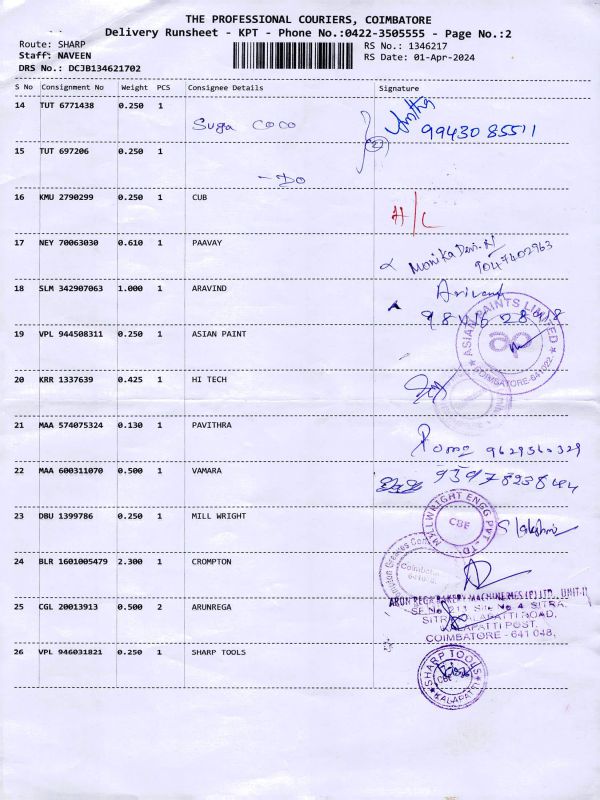 THE PROFESSIONAL COURIERS, COIMBATORE
Delivery Runsheet - KPT - Phone No.:0422-3505555 - Page No.:2
Route: SHARP RS No.: 1346217
Staff: NAVEEN RS Date: 01-Apr-2024
DRS No.: DCJB134621702
S No Consignment No Weight PCS Consignee Details Signature
14 TUT 6771438 0.250 1
Suga COCO
9943085511
15 TUT 697206 0.250 1
- Do
16 KMU 2790299 0.250 1 CUB
H/L
17 NEY 70063030 0.610 1 PAAVAY
Monika Devi. N
9047402963
18 SLM 342907063 1.000 1 ARAVIND
19 VPL 944508311 0.250 1 ASIAN PAINT
ASIAN PAINTS LIMITED
ap
COIMBATORE-641022
20 KRR 1337639 0.425 1 HI TECH
21 MAA 574075324 0.130 1 PAVITHRA
9629560329
22 MAA 600311070 0.500 1 VAMARA
23 DBU 1399786 0.250 1 MILL WRIGHT
MILLWRIGHT ENGG PVT. LTD.
CBE
24 BLR 1601005479 2.300 1 CROMPTON
Coimbatore
25 CGL 20013913 0.500 2 ARUNREGA
ARUN REGA BAKERY MACHINERIES (P) LTD., UNIT-II
SF No. 213, Site No 4, SITRA,
SITRA KALAPATTI ROAD,
KALAPATTI POST,
COIMBATORE - 641 048.
26 VPL 946031821 0.250 1 SHARP TOOLS
SHARP TOOLS
CBE
KALAPATTI